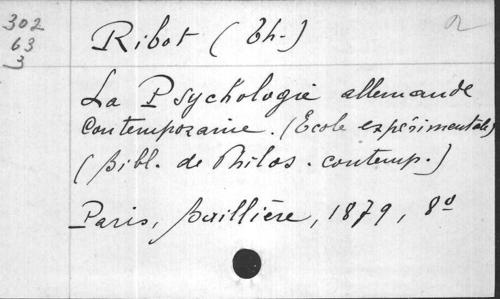 302
63
3
Ribot (Th.)
La Psychologie allemande
Contemporaine. (Ecole expérimentale)
(Bibl. de Philos. contemp.)
Paris, Baillière, 1879, 8º